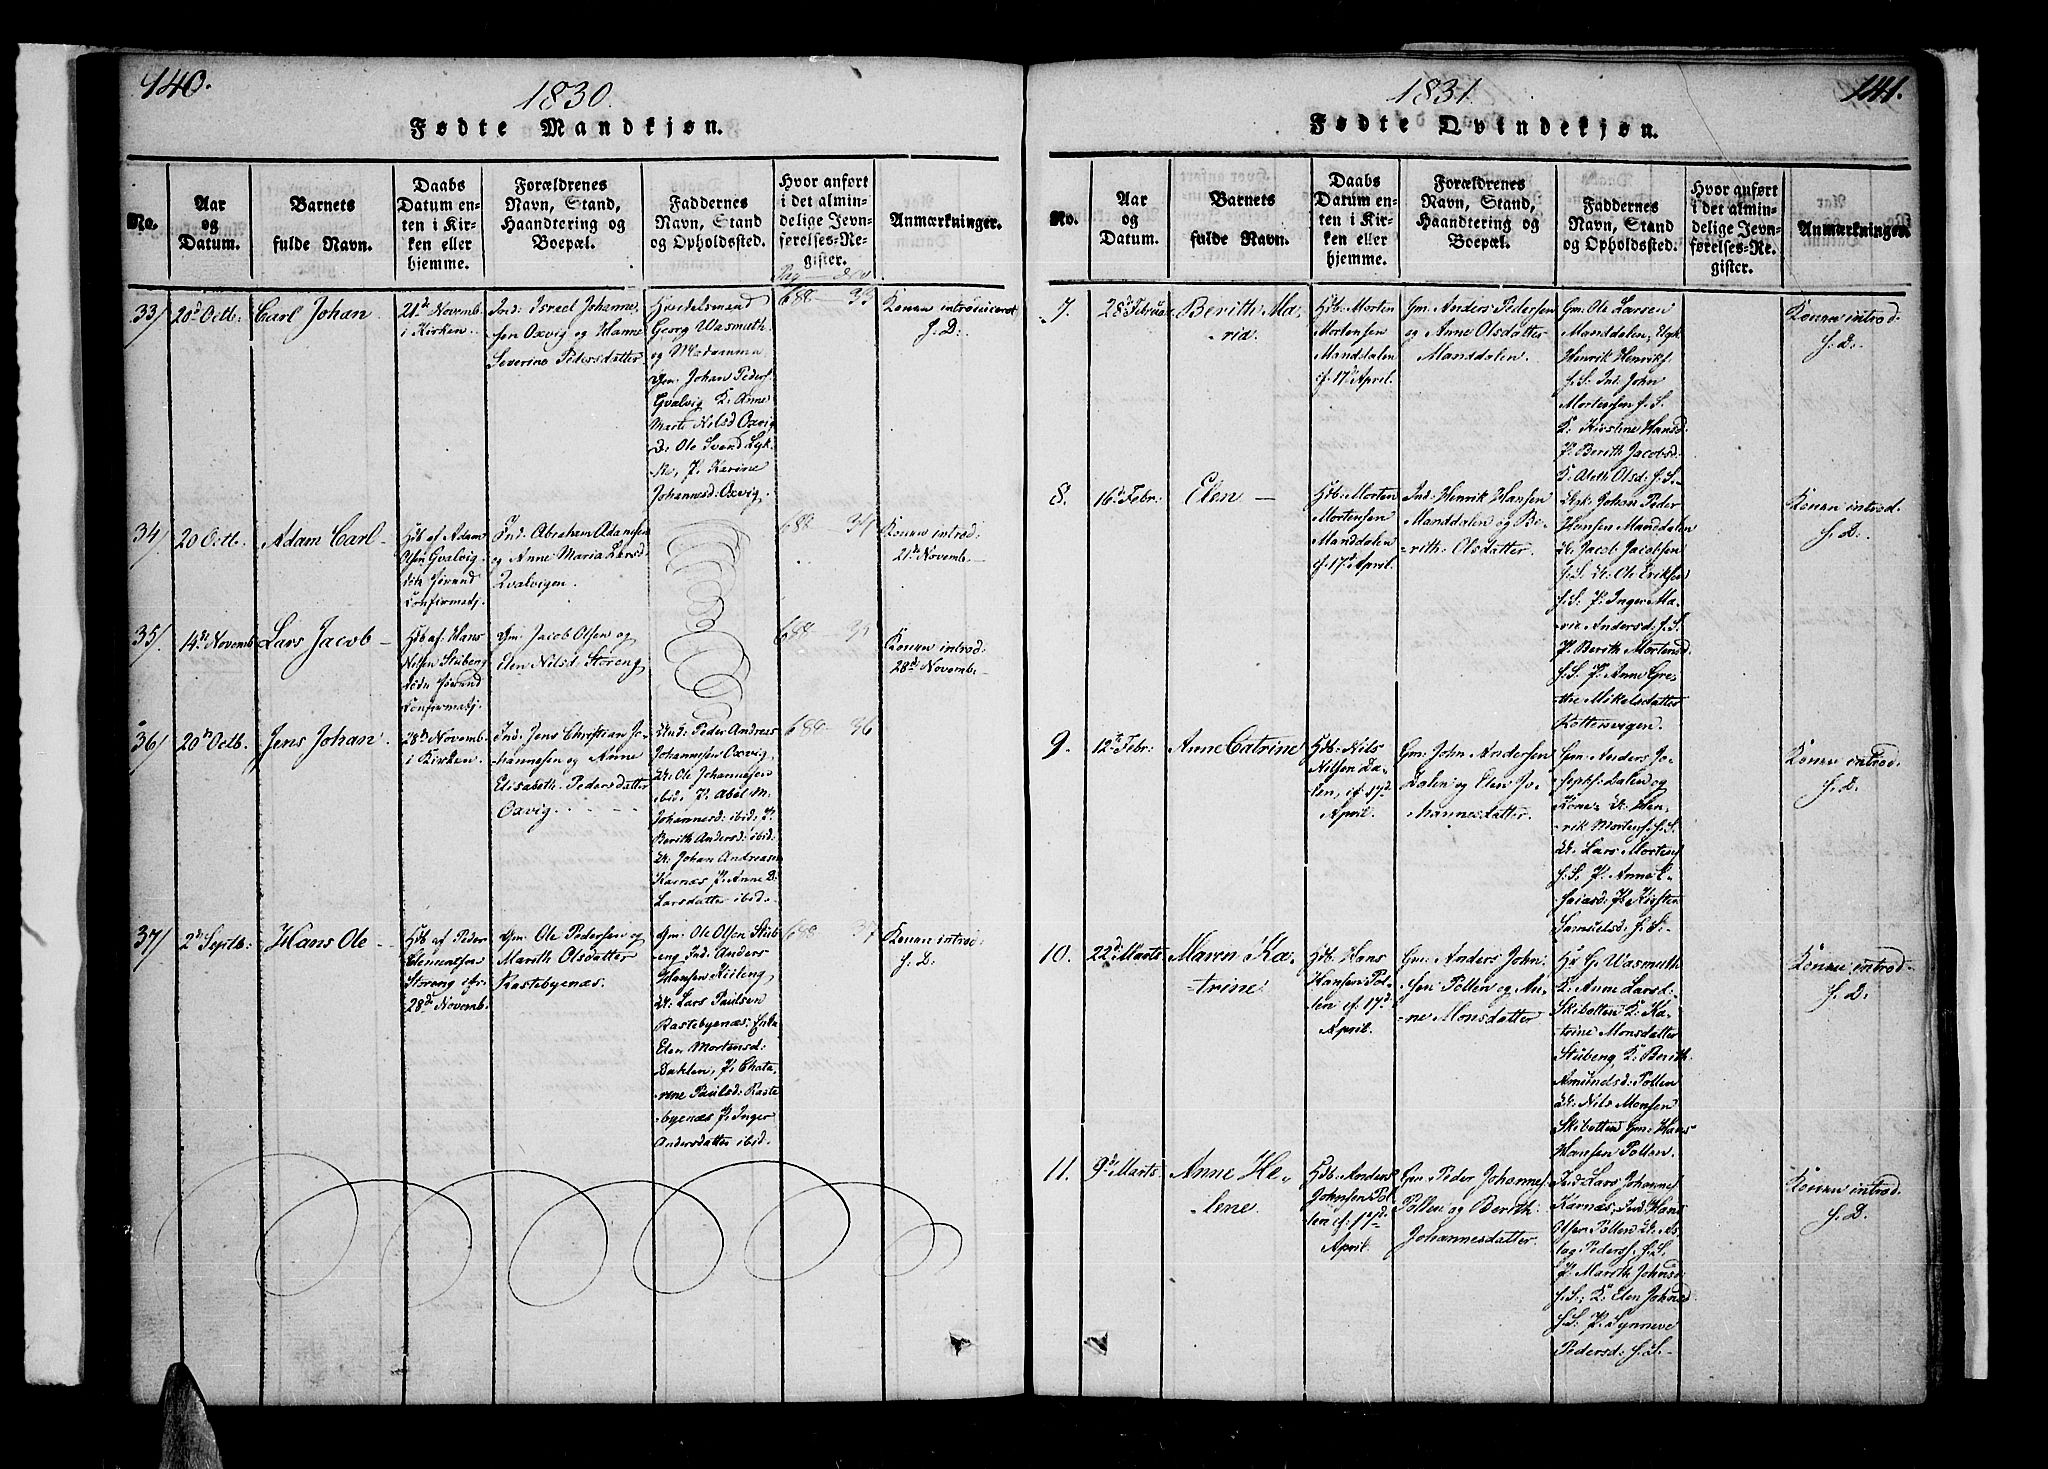 140.
1830.
Fødte Mandkjøn.
No.
Aar
og
Datum.
Barnets
fulde Navn.
Daabs
Datum en-
ten i Kir-
ken eller
hjemme.
Forældrenes
Navn, Stand,
Haandtering og
Boepæl.
Faddernes
Navn, Stand
og Opholdssted.
Hvor anført
i det almin-
delige Jevn-
førelses-Re-
gister.
Anmærkninger.
33/
20d Octb.
Carl Johan
21de Novemb.
i Kirken.
Ind: Israel Johanne-
sen Oxvig og Hanne
Severine Pedersdatter
Handelsmand
Georg Wasmuth
og Madamme
Gm: Johan Peders.
Qvalvig K. Anne
Marte Nilsd Oxvig
Ole Svend Lyk-
P. Karine
Johannesd: Oxvig.
688 33
Konen introduiceret
s. D.
34/
20 Octb.
Adam Carl
Hdb af Adam
Olsen Qvalvig
Confirmatj.
Ind: Abraham Adamsen
og Anne Maria Larsd
Qvalvigen.
688 34
Konen introd:
21de Novemb.
35/
14de Novemb
Lars Jacob
Hdb af: Hans
Nilsen Stubeng
Confirmatj.
Gm: Jacob Olsen og
Elen Nilsd: Storeng
688 35
Konen introd:
28d Novemb.
36/
20de Octb.
Jens Johan
28de Novemb.
i Kirken.
Ind: Jens Christian Jo-
hannesen og Anne
Elisabeth Pedersdatter
Oxvig.
Peder Andreas
Johannesen Oxvig
Ole Johannesen
ibid. P. Abel M.
Johannesd: ibid. P.
Berith Andersd: ibid:
Johan Andreasen
Karnæs P. Anne B.
Larsdatter ibid.
688 36
37/
2de Septb:
Hans Ole
Hdb af Peder
Clementsen
Storeng
28de Novemb.
Gm: Ole Pedersen og
Marith Olsdatter
Rastebyenæs.
Gm: Ole Olsen Stub-
eng Ind. Anders
Hansen Kiileng
Lars Paulsen
Rastebyenæs: Enke
Elen Mortensd:
Dahlen, P. Chata-
rine Paulsd: Raste
byenæs P. Inger
Andersdatter ibid.
688 37
Konen introd:
s. D.
141.
1831.
Fødte Qvindekjøn.
No.
Aar
og
Datum.
Barnets
fulde Navn.
Daabs
Datum en-
ten i Kir-
ken eller
hjemme.
Forældrenes
Navn, Stand,
Haandtering og
Boepæl.
Faddernes
Navn, Stand
og Opholdssted.
Hvor anført
i det almin-
delige Jevn-
førelses-Re-
gister.
Anmærkninger.
7.
28d Februar
Berith Ma-
ria.
Hdb: Morten
Mortensen
Manddalen
cf. 17d April.
Gm: Anders Pedersen
og Anne Olsdatter
Manddalen.
Gm: Ole Larsen
Manddalen,
Henrik Henriks.
f. S: Ind. John
Mortensen f. S.
K: Kirstine Hansd:
P. Berith Jacobsd:
K. Abeth Olsd: f. S.
Konen introd.
s. D.
8.
16d Febr:
Elen
Hdb: Morten
Mortensen
Manddalen
cf. 17d April.
Ind: Henrik Hansen
Manddalen og Be-
rith Olsdatter.
Johan Peder
Hansen Manddalen
Jacob Jacobsen
f. S. Ole Eriksen
f. S: P. Inger Ma-
rie Andersd: f. S.
P. Berith Mortensd
f. S. P. Anne Gre-
the Mikelsdatter
Kottervigen.
Konen introd.
s. D.
9.
12te Febr:
Anne Catrine
Hdb: Nils
Nilsen Da-
len, cf. 17d
April.
Gm: John Andersen
Dalen og Elen Jo-
hannesdatter.
Gm: Anders Jo-
sephs: Dalen og
Kone. Hen-
rik Mortens. f. S.
Lars Mortens
f. S. P. Anne E-
saiasd: P. Kirsten
Samuelsd: f. S.
Konen introd.
s. D.
10.
22d: Marts
Maren Ka-
trine
Hdb: Hans
Hansen Pol-
len cf. 17d
April.
Gm: Anders John-
sen Pollen og An-
ne Monsdatter
Hr G. Wasmuth
K. Anne Larsd:
Skibotten K. Ka-
trine Monsdatter
Stubeng K: Berith
Amundsd: Pollen
Nils Monsen
Skibotten Gm: Hans
Hansen Pollen.
Konen introd.
s. D.
11.
9de Marts
Anne He-
lene.
Hdb: Anders
Johnsen Pol-
len cf. 17d
April.
Gm: Peder Johannes
Pollen og Berith
Johannesdatter.
Ind: Lars Johannes
Karnæs, Ind Hans
Olsen Pollen As-
lag Peders. f. S.
P. Marith Johnsd
f. S: K: Elen Johnsd
f. S. P. Synneve
Pedersd: f. S.
Konen introd.
s. D.